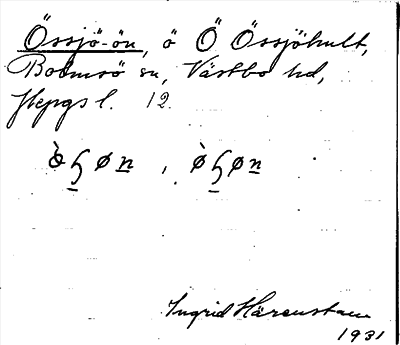 Össjö-ön, ö Ö Össjöhult,
Bolmsö sn, Västbo hd,
Jkpgs l. 12.
Ingrid Härenstam
1931